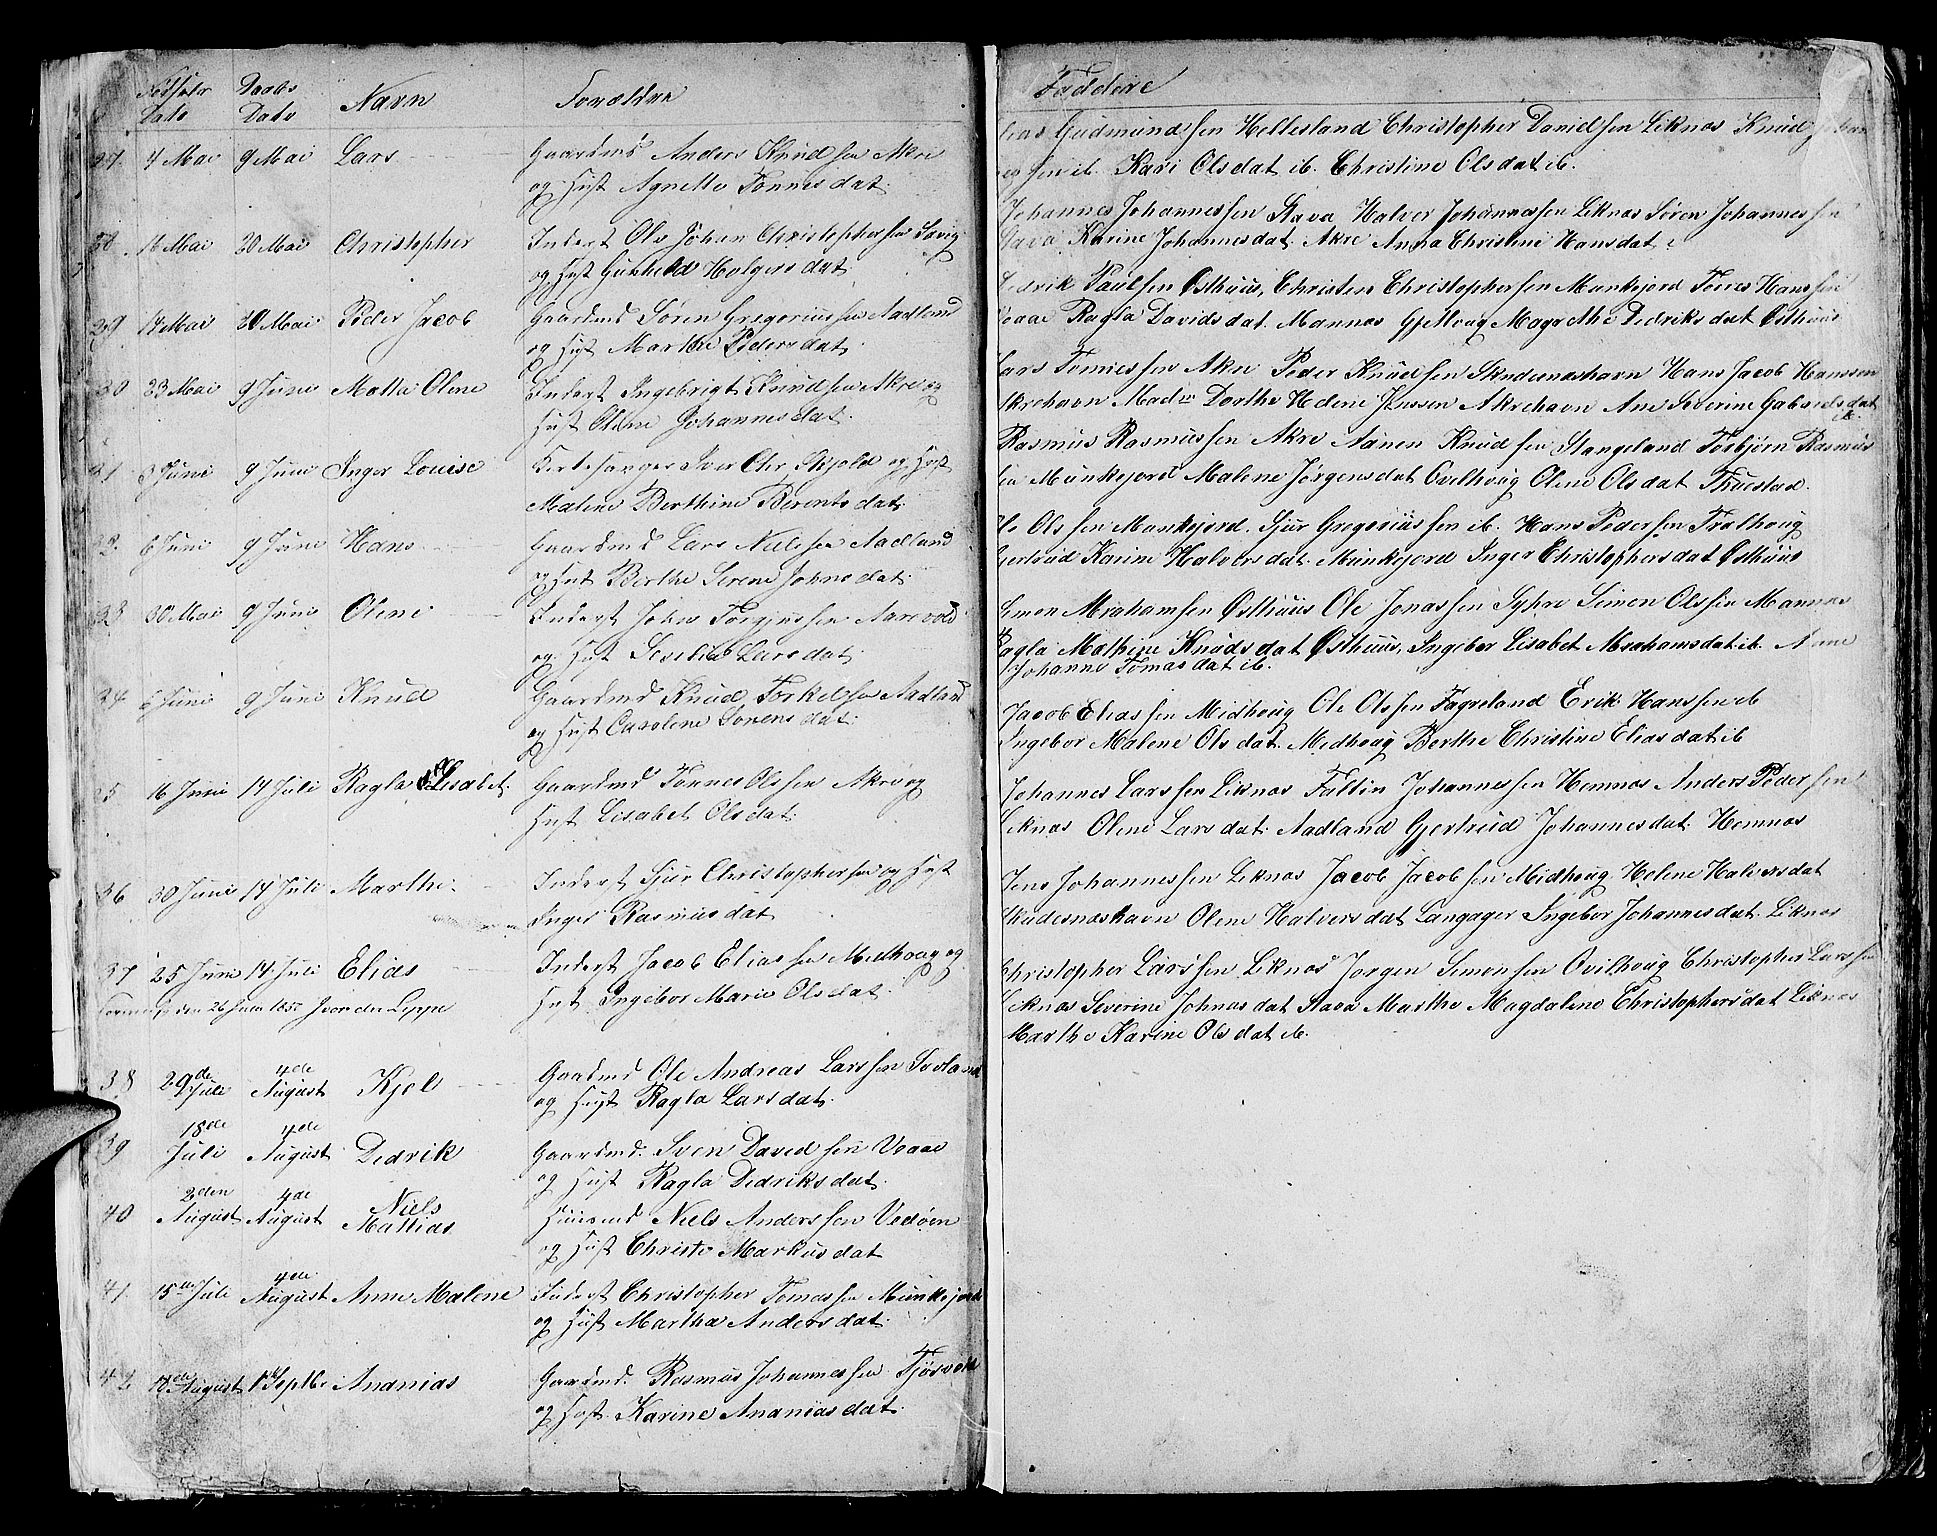 Fødsels Daabs
Dato Dato Navn Forældre
27 4 Mai 9 Mai Lars Gaardmd Anders Knudsen Akre
og Hust Agnette Tønnesdat.
28 16 Mai 20 Mai Christopher Inderst Ole Johan Christophersen
og Hust Gunhild Holgersdat
29 14 Mai 20 Mai Peder Jacob Gaardmd Søren Gregoriussen Aadland
og Hust Marthe Pedersdat.
30 23 Mai 9 Juni Malla Oline Inderst Ingebrigt Knudsen Akre og
Hust Oline Johannesdat.
31 3 Juni 9 Juni Inger Louise Kirkesanger Iver Chr. Skjold og Hust
Malene Berthine Berentsdat.
32. 6 Juni 9 Juni Hans Gaardmd Lars Nielssen Aadland
og Hust Berthe Serene Johnsdat.
33 30 Mai 9 Juni Oline Inderst John Torgjussen Aarevold
og Hust Larsdat.
34 6 Juni 9 Juni Knud Gaardmd Knud Torkelsen Aadland
og Hust Caroline Sørensdat.
35 16 Juni 14 Juli Ragla Elisabet. Gaardmd Tønnes Olssen Akre og
Hust Lisabet Olsdat.
36 30 Juni 14 Juli Marthe. Inderst Sjur Christophersen og Hust
Inger Rasmusdat
37 25 Juni 14 Juli Elias Inderst Jacob Eliassen Midhoug og
den 26 Juni 1857 Hust Ingebor Marie Olsdat.
38 29de Juli 4de August Kjel Gaardmd Ole Andreas Larssen
og Hust Ragla Larsdat.
39 18de Juli 4de August Dedrik Gaardmd. Sven Davedsen Vaaae
og Hust Ragla Dedriksdat.
40 2den August 4de August Niels Mattias Huusmd Niels Anderssen Vedøen
og Hust Christi Markusdat
41. 15de Juli 4de August Anne Malene Inderst Christopher Tomassen Munkejord
og Hust Martha Andersdat.
42 18de August 1ste Septbr Ananias Gaardmd. Rasmus Johannessen
og Hust. Karine Ananiasdat.
Faddere
Gudmundsen Hellesland Christopher Danielsen Liknas Knud
ib. Kari Olsdat ib. Christine Olsdat ib.
Johannes Johannessen Stava Halver Johannessen Liknas Søren Johannessen
Stava Karine Johannesdat. Akre Anna Christine Hansdat
Dedrik Paulsen Østhuus, Christen Christophersen Munkejord Tønnes Hanssen
Vaaae Ragla Davidsdat. Mannas Gjelloug Magrethe Dedriksdat Østhuus
Lars Tønnessen Akre Peder Knudsen Skudesnæshavn Hans Jacob Hanssen
Akrehavn Madm Dorthe Helene Jenssen Akrehavn Ane Severine Gabrielsdat
ib.
Rasmus Rasmussen Akre Aanen Knudsen Stangeland Torbjørn Rasmus
sen Munkejord Malene Jørgensdat Ovilhoug Olene Olsdat Thuestad.
Ole Olssen Munkejord. Sjur Gregoriussen ib. Hans Pedersen Tralhoug
Karine Halversdat. Munkejord Inger Christophersdat Østhuus
Simon Abrahamsen Østhuus Ole Jonassen Syhre Simon Olssen Mannas
Ragla Mathine Knudsdat Østhuus, Ingebor Lisabet Abrahamsdat ib. Anne
Johanne Tomasdat ib.
Jacob Eliassen Midhoug Ole Olssen Fagreland Erik Hanssen ib
Ingebor Malene Olsdat. Medhoug Berthe Christine Eliasdat ib
Johannes Larssen Liknas Faltin Johannessen Hemnas Anders Pedersen
Liknas Oline Larsdat. Aadland Gjertrud Johannesdat. Hemnas
Jens Johannessen Liknas Jacob Jacobsen Midhoug Helene Halversdat
Skudesnæshavn Oline Halversdat Langager Ingebor Johannesdat. Liknas
Christopher Larssen Liknas Jørgen Simonsen Ovilhoug Christopher Larssen
Liknas Severine Johnasdat Stava Marthe Magdaline Christophersdat Liknas
Marthe Karine Olsdat ib.